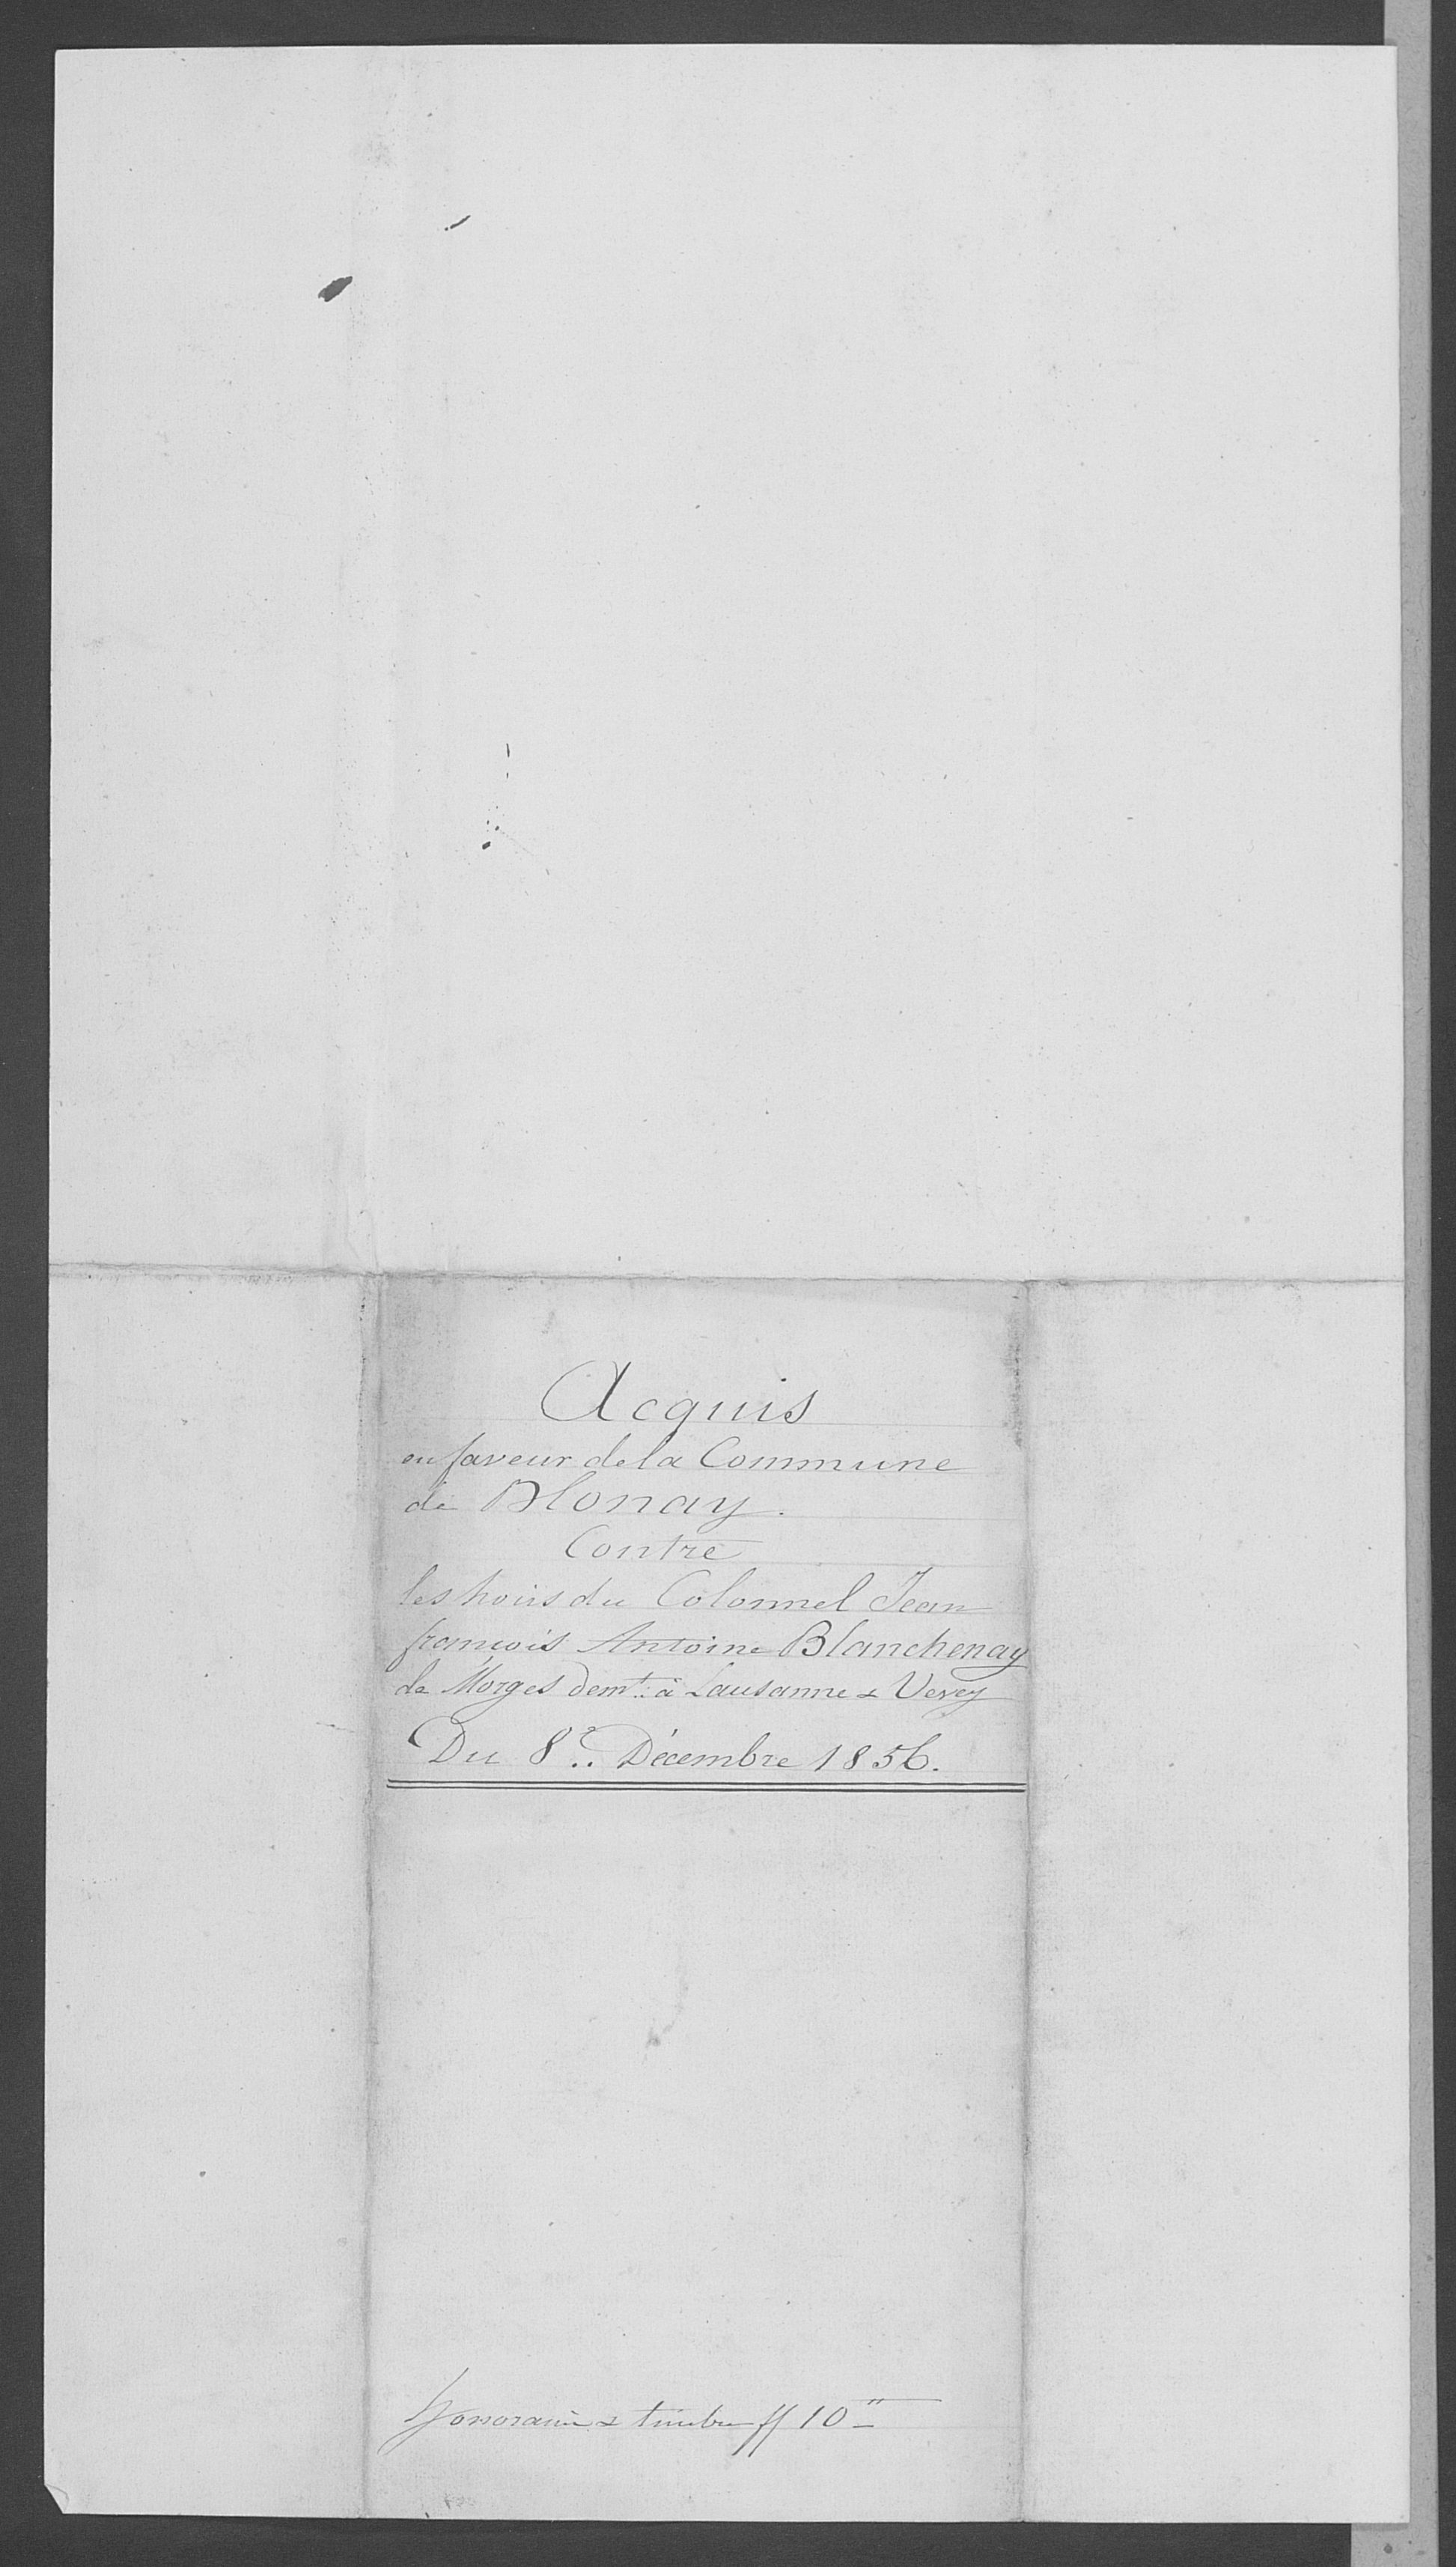 Acquis
en faveur de la Commune
de Blonay.
Contre
les hoirs du Colonnel Jean
françois Antoine Blanchenay
de Morges demt: à Lausanne & Vevey
Du 8e.. Décembre 1856.
Honoraire & timbre ff 10"